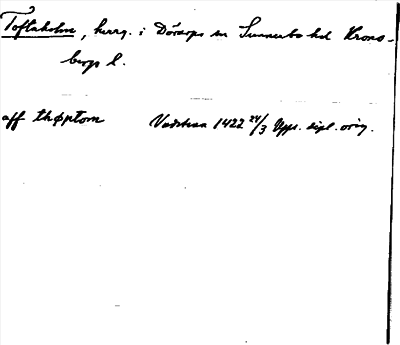 Toftaholm, herrg. i Dörarps sn Sunnerbo hd Krono-
bergs l.
aff thøptom Vadstena 1422 24/3 Upps. dipl. orig.